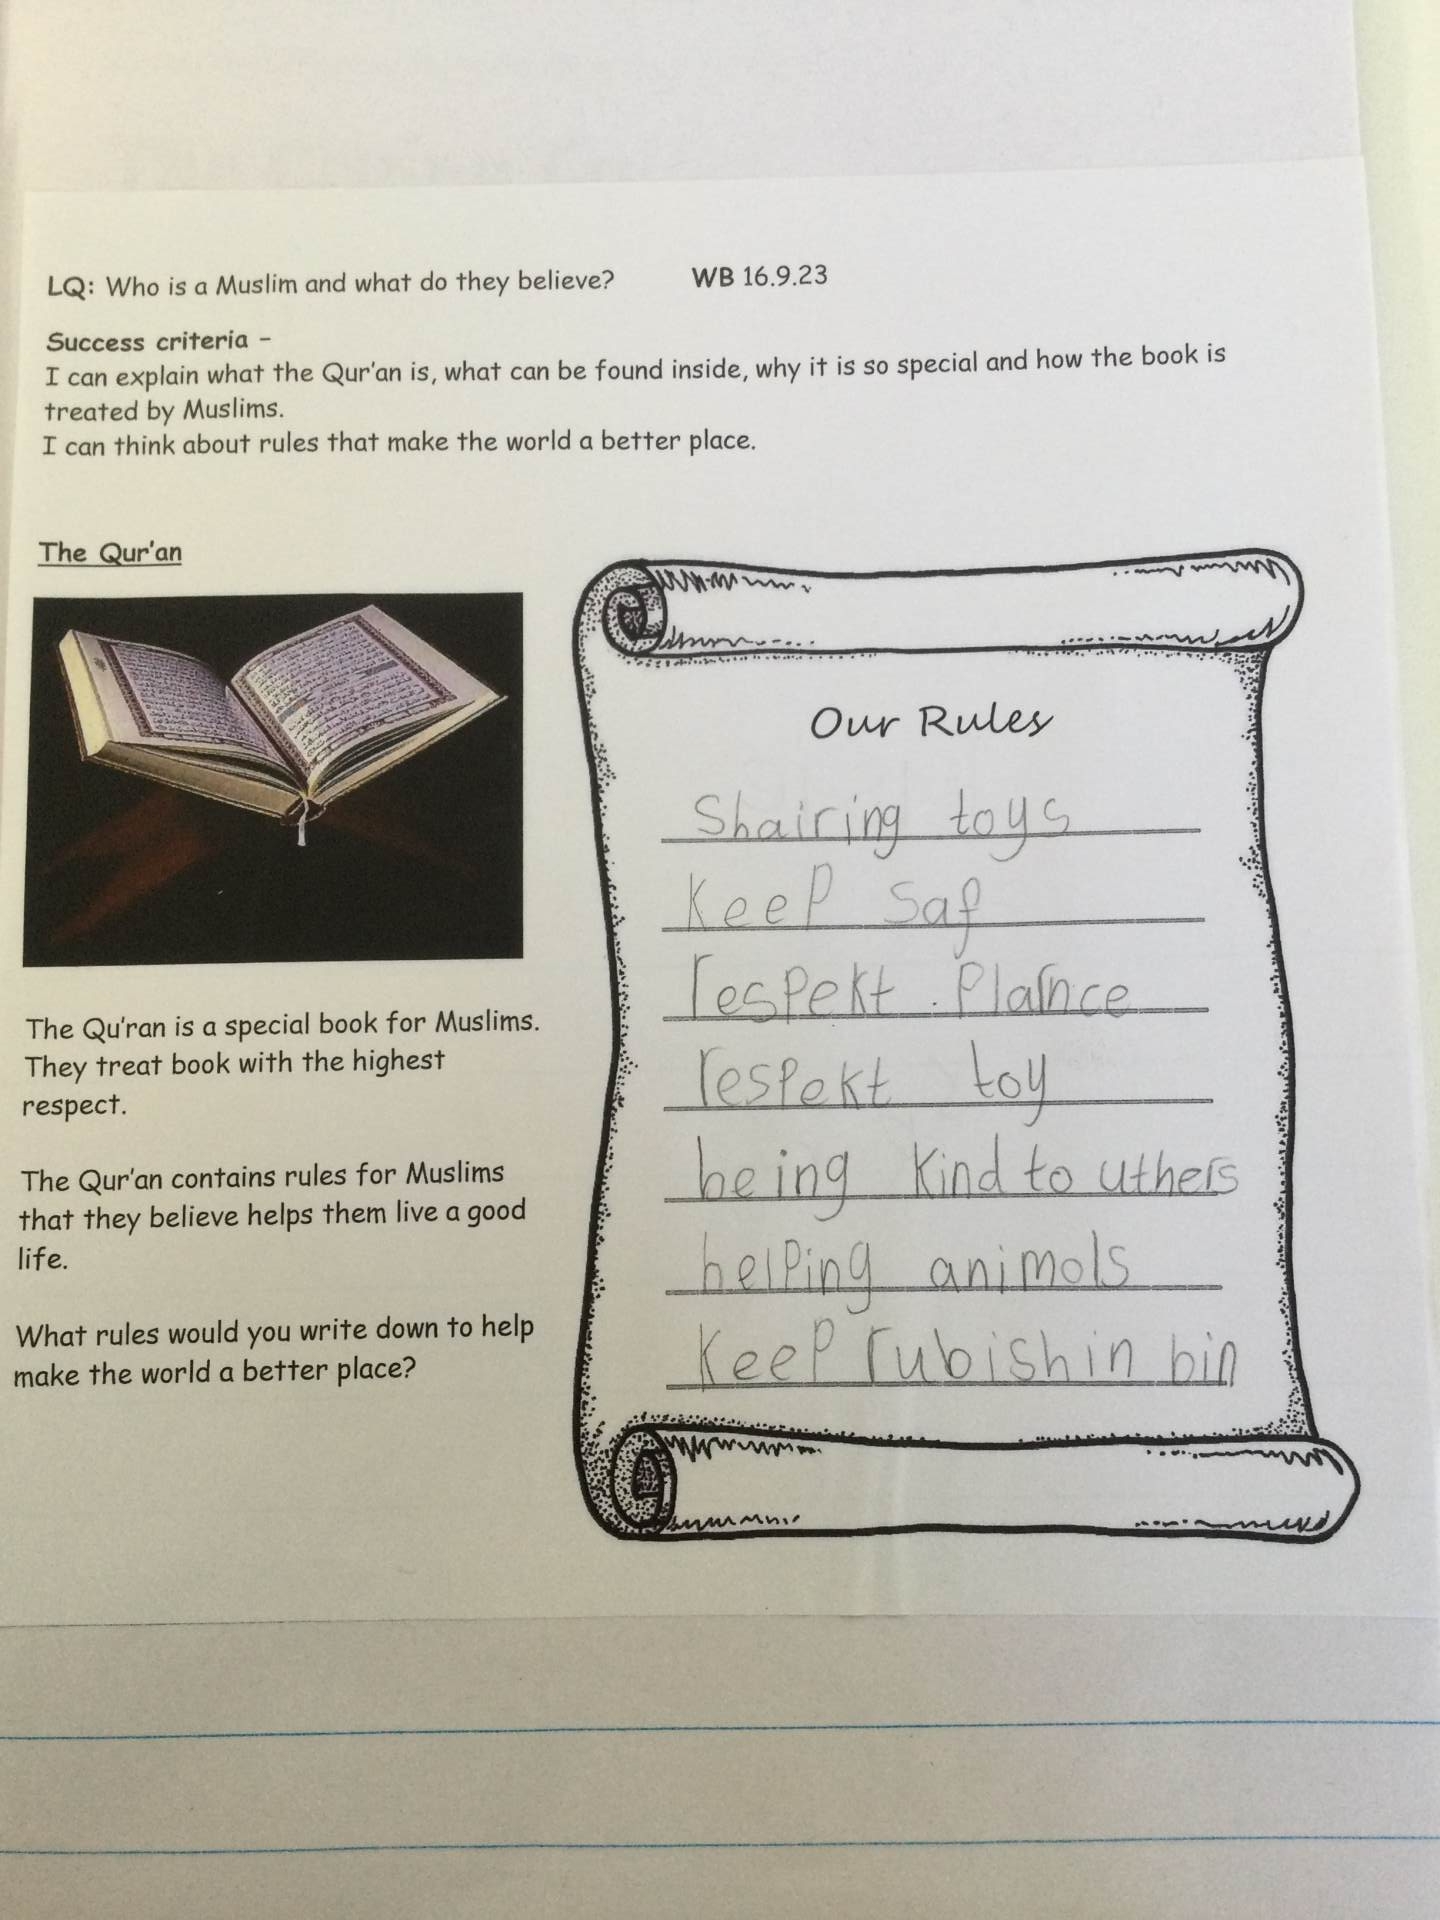 LQ: Who is a Muslim and what do they believe? WB 16.9.23
Success criteria –
I can explain what the Qur'an is, what can be found inside, why it is so special and how the book is
treated by Muslims.
I can think about rules that make the world a better place.
The Qur'an
The Qu'ran is a special book for Muslims.
They treat book with the highest
respect.
The Qur'an contains rules for Muslims
that they believe helps them live a good
life.
What rules would you write down to help
make the world a better place?
Our Rules
Shairing toys
Keep saf
respekt
respekt toy
being kind to uthers
helping animols
Keep rubish in bin